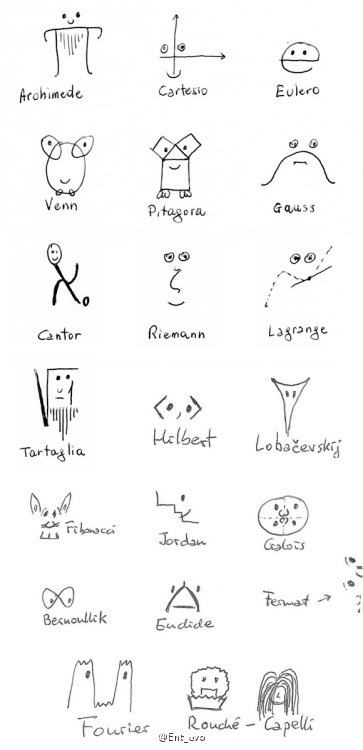 Archimede Cartesio Eulero
Venn Pitagora Gauss
Cantor Riemann Lagrange
Tartaglia Hilbert Lobačevskij
Fibonacci Jordan Galois
Bernoullik Euclide Fermat →
Fourier Rouché - Capelli
@Ent_evo